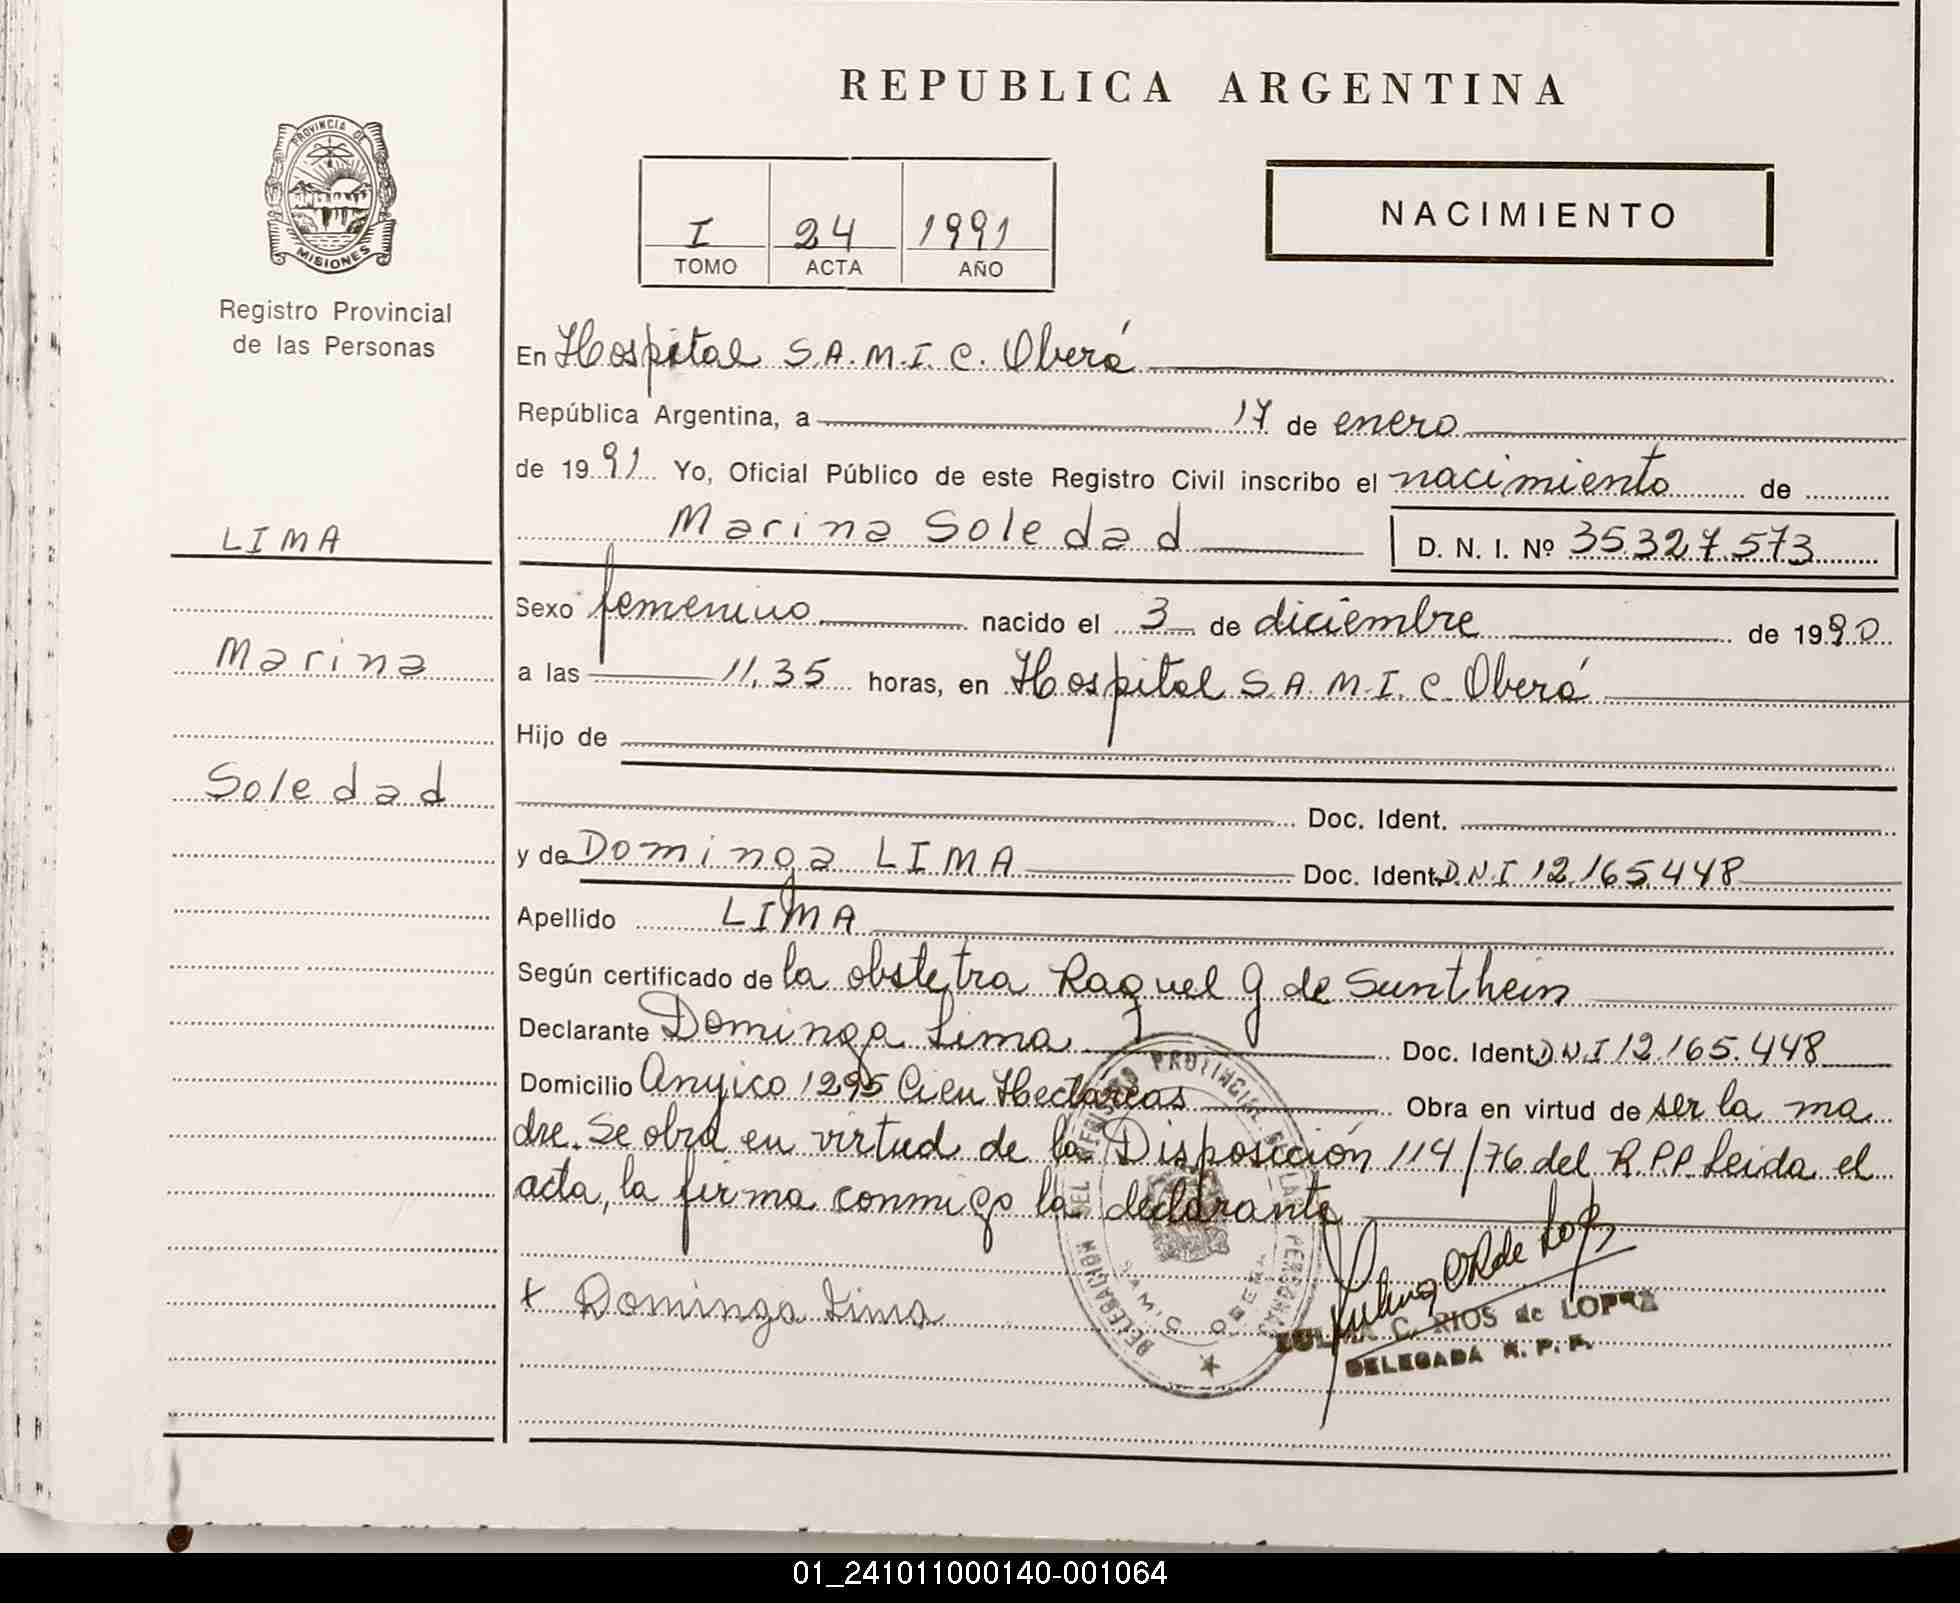 REPUBLICA ARGENTINA
PROVINCIA DE
MISIONES
Registro Provincial
de las Personas
I 24 1991
TOMO ACTA AÑO
NACIMIENTO
En Hospital S.A.M.I.C. Oberá
República Argentina, a 17 de enero
de 1991 Yo, Oficial Público de este Registro Civil inscribo el nacimiento de
Marina Soledad D. N. I. Nº 35.327.573
LIMA
Marina
Soledad
Sexo femenino nacido el 3 de diciembre de 1990
a las 11,35 horas, en Hospital S.A.M.I.C. Oberá
Hijo de
Doc. Ident.
y de Dominga LIMA Doc. Ident. DNI 12.165.448
Apellido LIMA
Según certificado de la obstetra Raquel G de Sunthein
Declarante Dominga Lima Doc. Ident. DNI 12.165.448
Domicilio Anyico 1295 Cien Hectareas Obra en virtud de ser la ma
dre. Se obra en virtud de la Disposición 114/76 del R.P.P. Leida el
acta, la firma conmigo la declarante
x Dominga Lima
DELEGACION DEL REGISTRO PROVINCIAL DE LAS PERSONAS
ZULMA C. RIOS de LOPEZ
DELEGADA R. P. P.
01_241011000140-001064